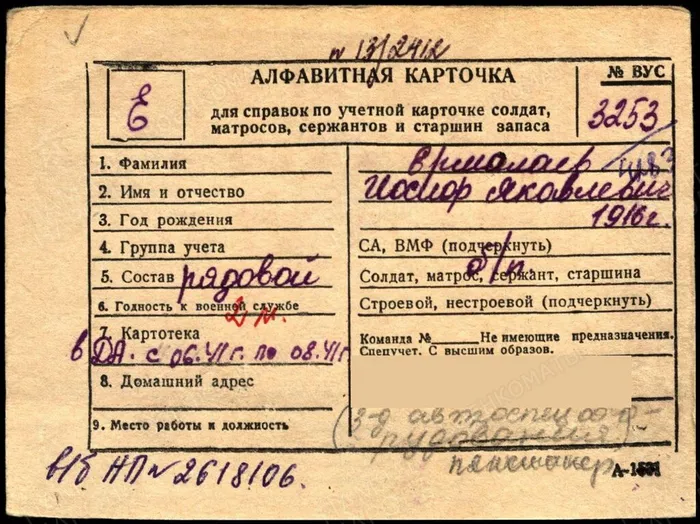 № 13/2412
АЛФАВИТНАЯ КАРТОЧКА
№ ВУС
Е
для справок по учетной карточке солдат,
матросов, сержантов и старшин запаса
3253
1. Фамилия
Ермалаев
2. Имя и отчество
Иосиф Яковлевич
3. Год рождения
1916г.
4. Группа учета
СА, ВМФ (подчеркнуть)
5. Состав рядовой
б/п.
Солдат, матрос, сержант, старшина
6. Годность к военной службе
Строевой, нестроевой (подчеркнуть)
7. Картотека
Команда № Не имеющие предназначения.
в ДА. с 06.41г. по 08.41г.
Спецучет. С высшим образов.
8. Домашний адрес
(з-д автоспецобо-
9. Место работы и должность
рудования)
пенсионер
в/б НП № 2618106.
А-1531